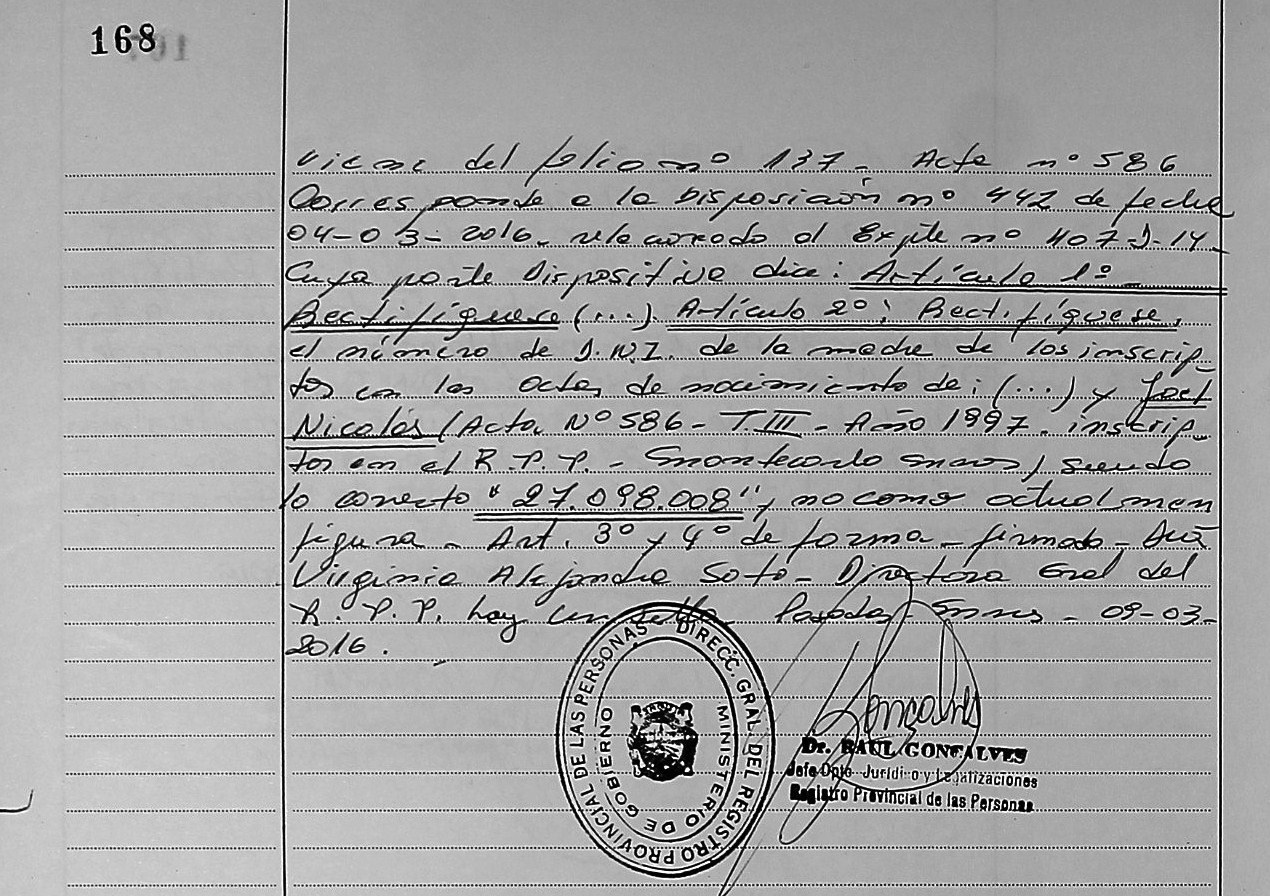 168
Viene del folio nº 137 - Acta nº 586
Corresponde a la Disposición nº 442 de fecha
04-03-2016- relacionado al Expte nº 407-J-14-
Cuya parte Dispositiva dice: Artículo 1º
Rectifíquese (...) Artículo 2º: Rectifíquese,
el número de D.N.I. de la madre de los inscrip-
tos en las actas de nacimiento de: (...) y
Nicolás (Acta Nº 586 - T. III - Año 1997. inscrip-
tos en el R.P.P. - Montecarlo Mnes) siendo
lo correcto "27.098.008" y no como actualmen
figura - Art. 3º y 4º de forma - firmado -
Virginia Alejandra Soto - Directora Gral del
R.P.P. hay un sello. Posadas Mnes - 09-03-
2016.
DIRECC. GRAL. DEL REGISTRO PROVINCIAL DE LAS PERSONAS
MINISTERIO DE GOBIERNO
Gonçalves
Dr. RAUL GONCALVES
Jefe Dpto. Jurídico y Legalizaciones
Registro Provincial de las Personas